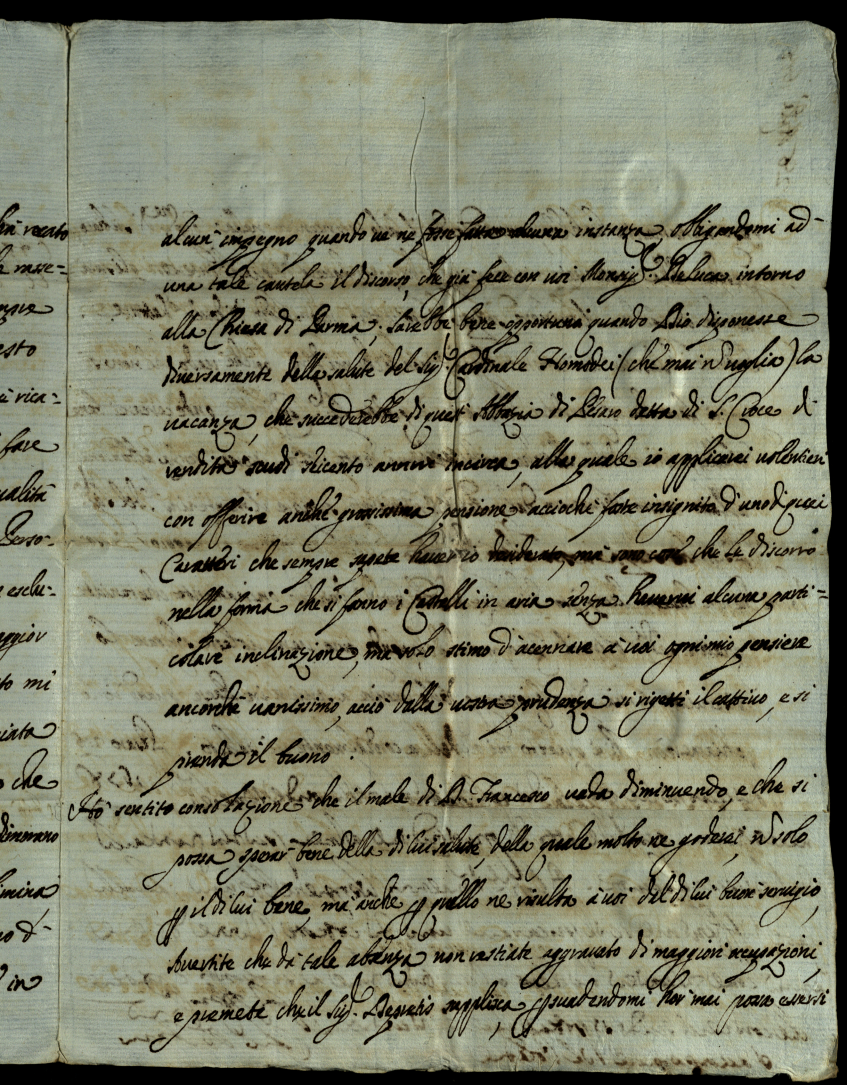 alcun' impegno quando ve ne fosse fatta alcuna instanza, obligandomi ad
una tale cautela il discorso, che già fece con voi Monsig.r De Luca intorno
alla Chiesa di Parma, sarebbe bene opportuna quando Dio disponesse
diversamente della salute del Sig.r Cardinale Homodei (che mai nõ voglia) la
vacanza, che succederebbe di quest'Abbazia di Pesaro detta di S. Croce di
rendita scudi seicento annui incirca, alla quale io applicarei volentieri
con offerire anche grossissima pensione acciochè fosse insignito d'uno di quei
Caratteri che sempre sapete haver io desiderato, mà sono cose che le discorro
nella forma che si fanno i Castelli in aria senza havervi alcuna parti=
colare inclinazione, mà solo stimo d'accennare à voi ogni mio pensiere
ancorchè vanissimo, acciò dalla vostra prudenza si rigetti il cattivo, e si
prenda il buono.
Hò sentito consolazione che il male di D. Francesco vada diminuendo, e che si
possa sperar bene della di lui salute, della quale molto ne goderei, nõ solo
p il di lui bene, mà anche p quello ne risulta à voi del di lui buon servigio,
Avertite che dà tale absenza non restiate aggravato di maggiori occupazioni,
e premete che il Sig.r Depretis supplisca, psuadendomi hor mai possa essersi